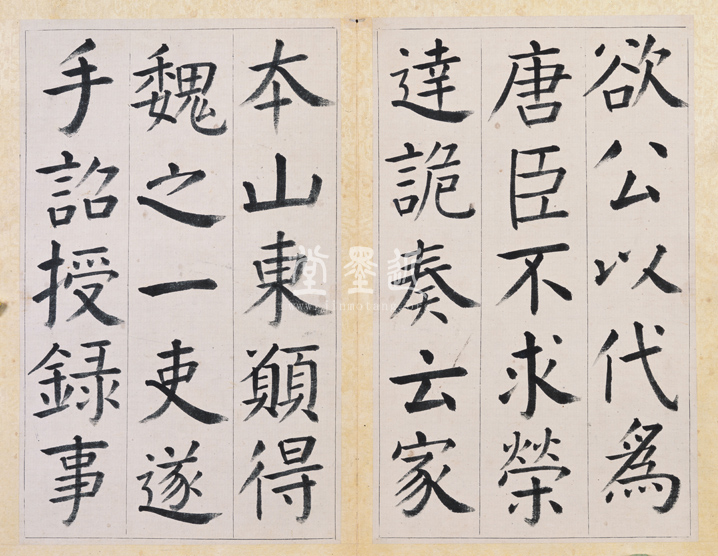 欲公以代爲
唐臣不求榮
達詭奏云家
本山東願得
魏之一吏遂
手詔授録事